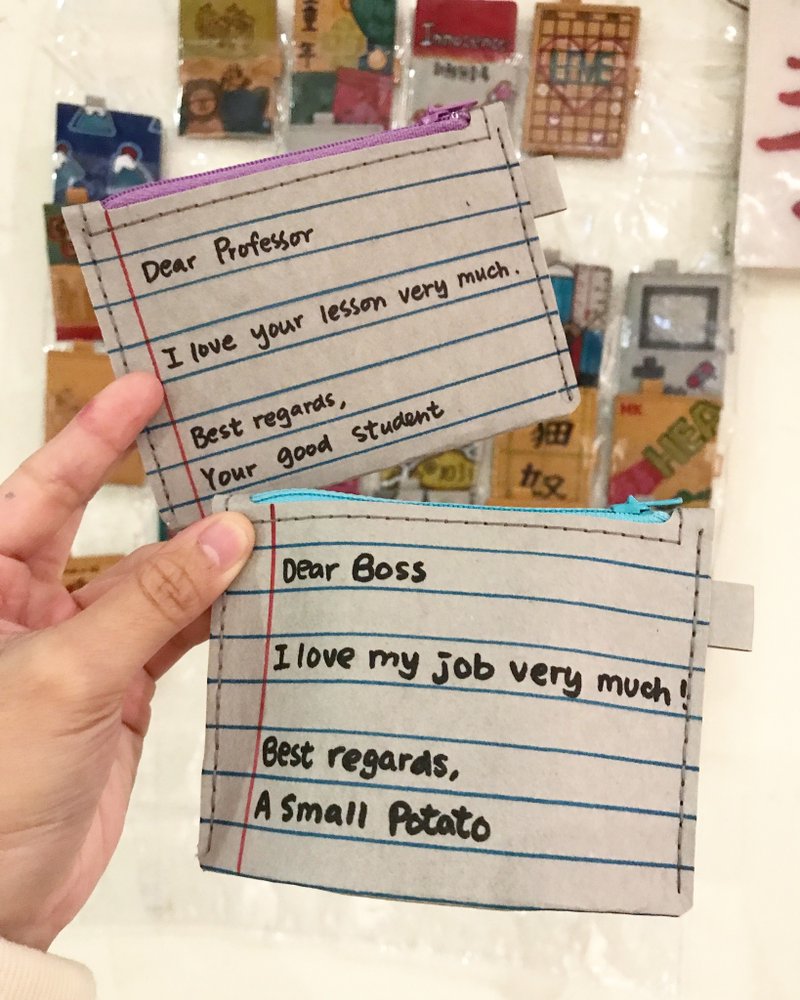 童
年
Innocence
LIVE
Dear Professor
I love your lesson very much.
Best regards,
Your good student
HK
Dear Boss
I love my job very much!
Best regards,
A Small Potato